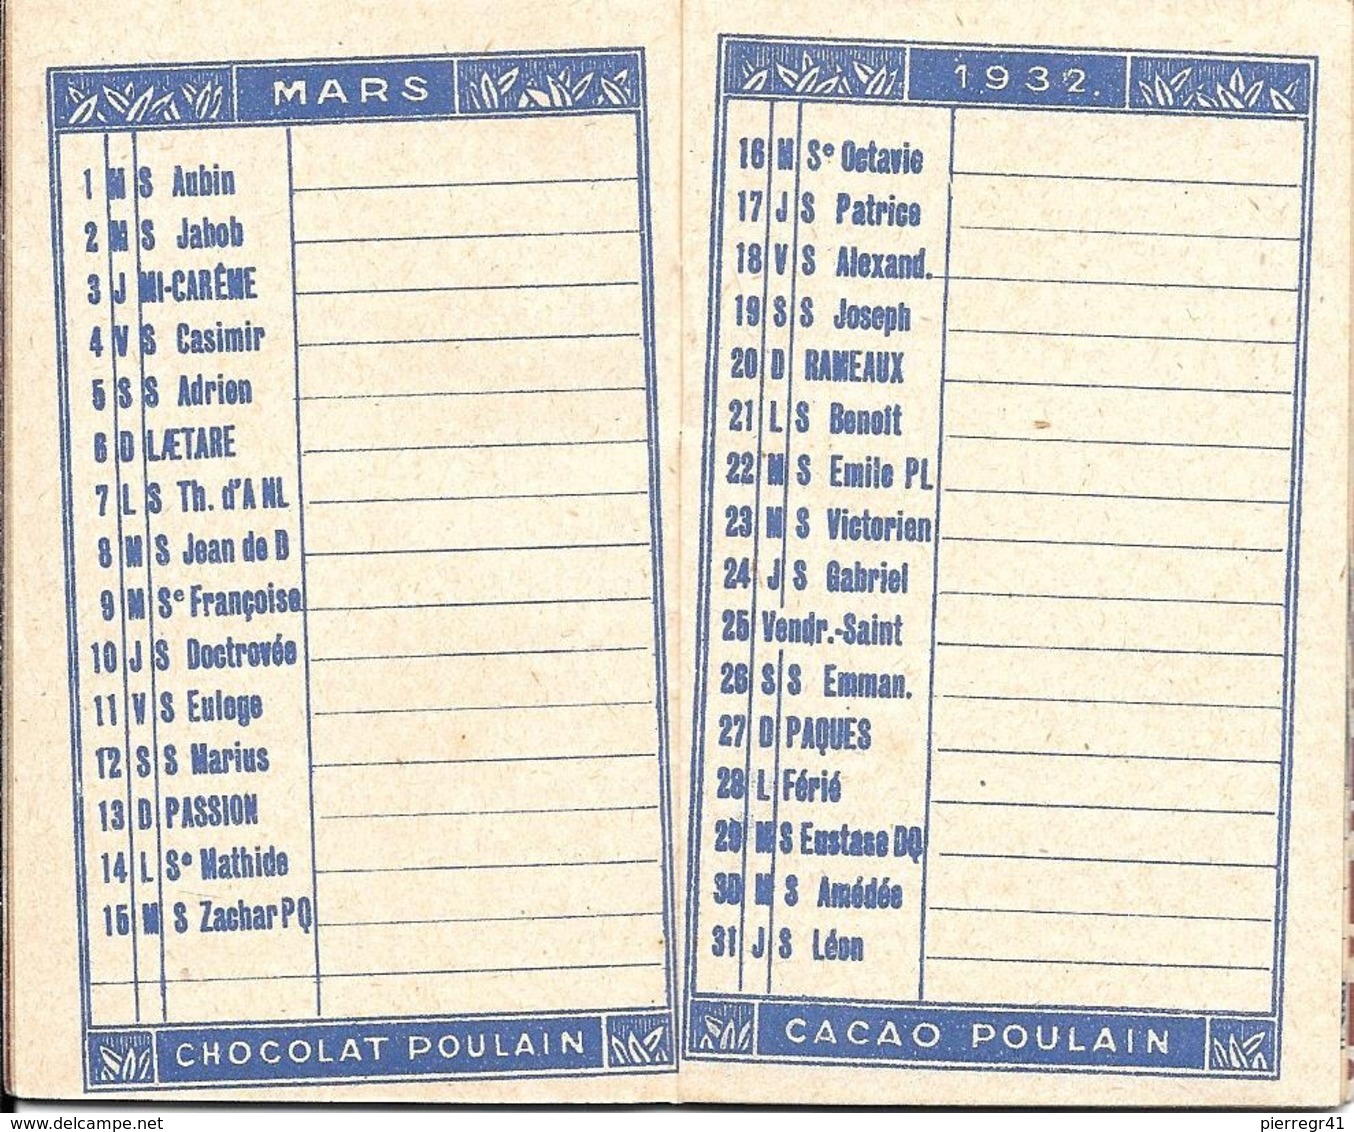 MARS
1 M S Aubin
2 M S Jahob
3 J MI-CARÊME
4 V S Casimir
5 S S Adrien
6 D LÆTARE
7 L S Th. d'A NL
8 M S Jean de D
9 M Se Françoise
10 J S Doctrovée
11 V S Euloge
12 S S Marius
13 D PASSION
14 L Se Mathide
15 M S Zachar PQ
CHOCOLAT POULAIN
1932.
16 M Se Octavie
17 J S Patrice
18 V S Alexand.
19 S S Joseph
20 D RAMEAUX
21 L S Benoît
22 M S Emile PL
23 M S Victorien
24 J S Gabriel
25 Vendr.-Saint
26 S S Emman.
27 D PAQUES
28 L Férié
29 M S Eustase DQ
30 M S Amédée
31 J S Léon
CACAO POULAIN
www.delcampe.net
pierregr41